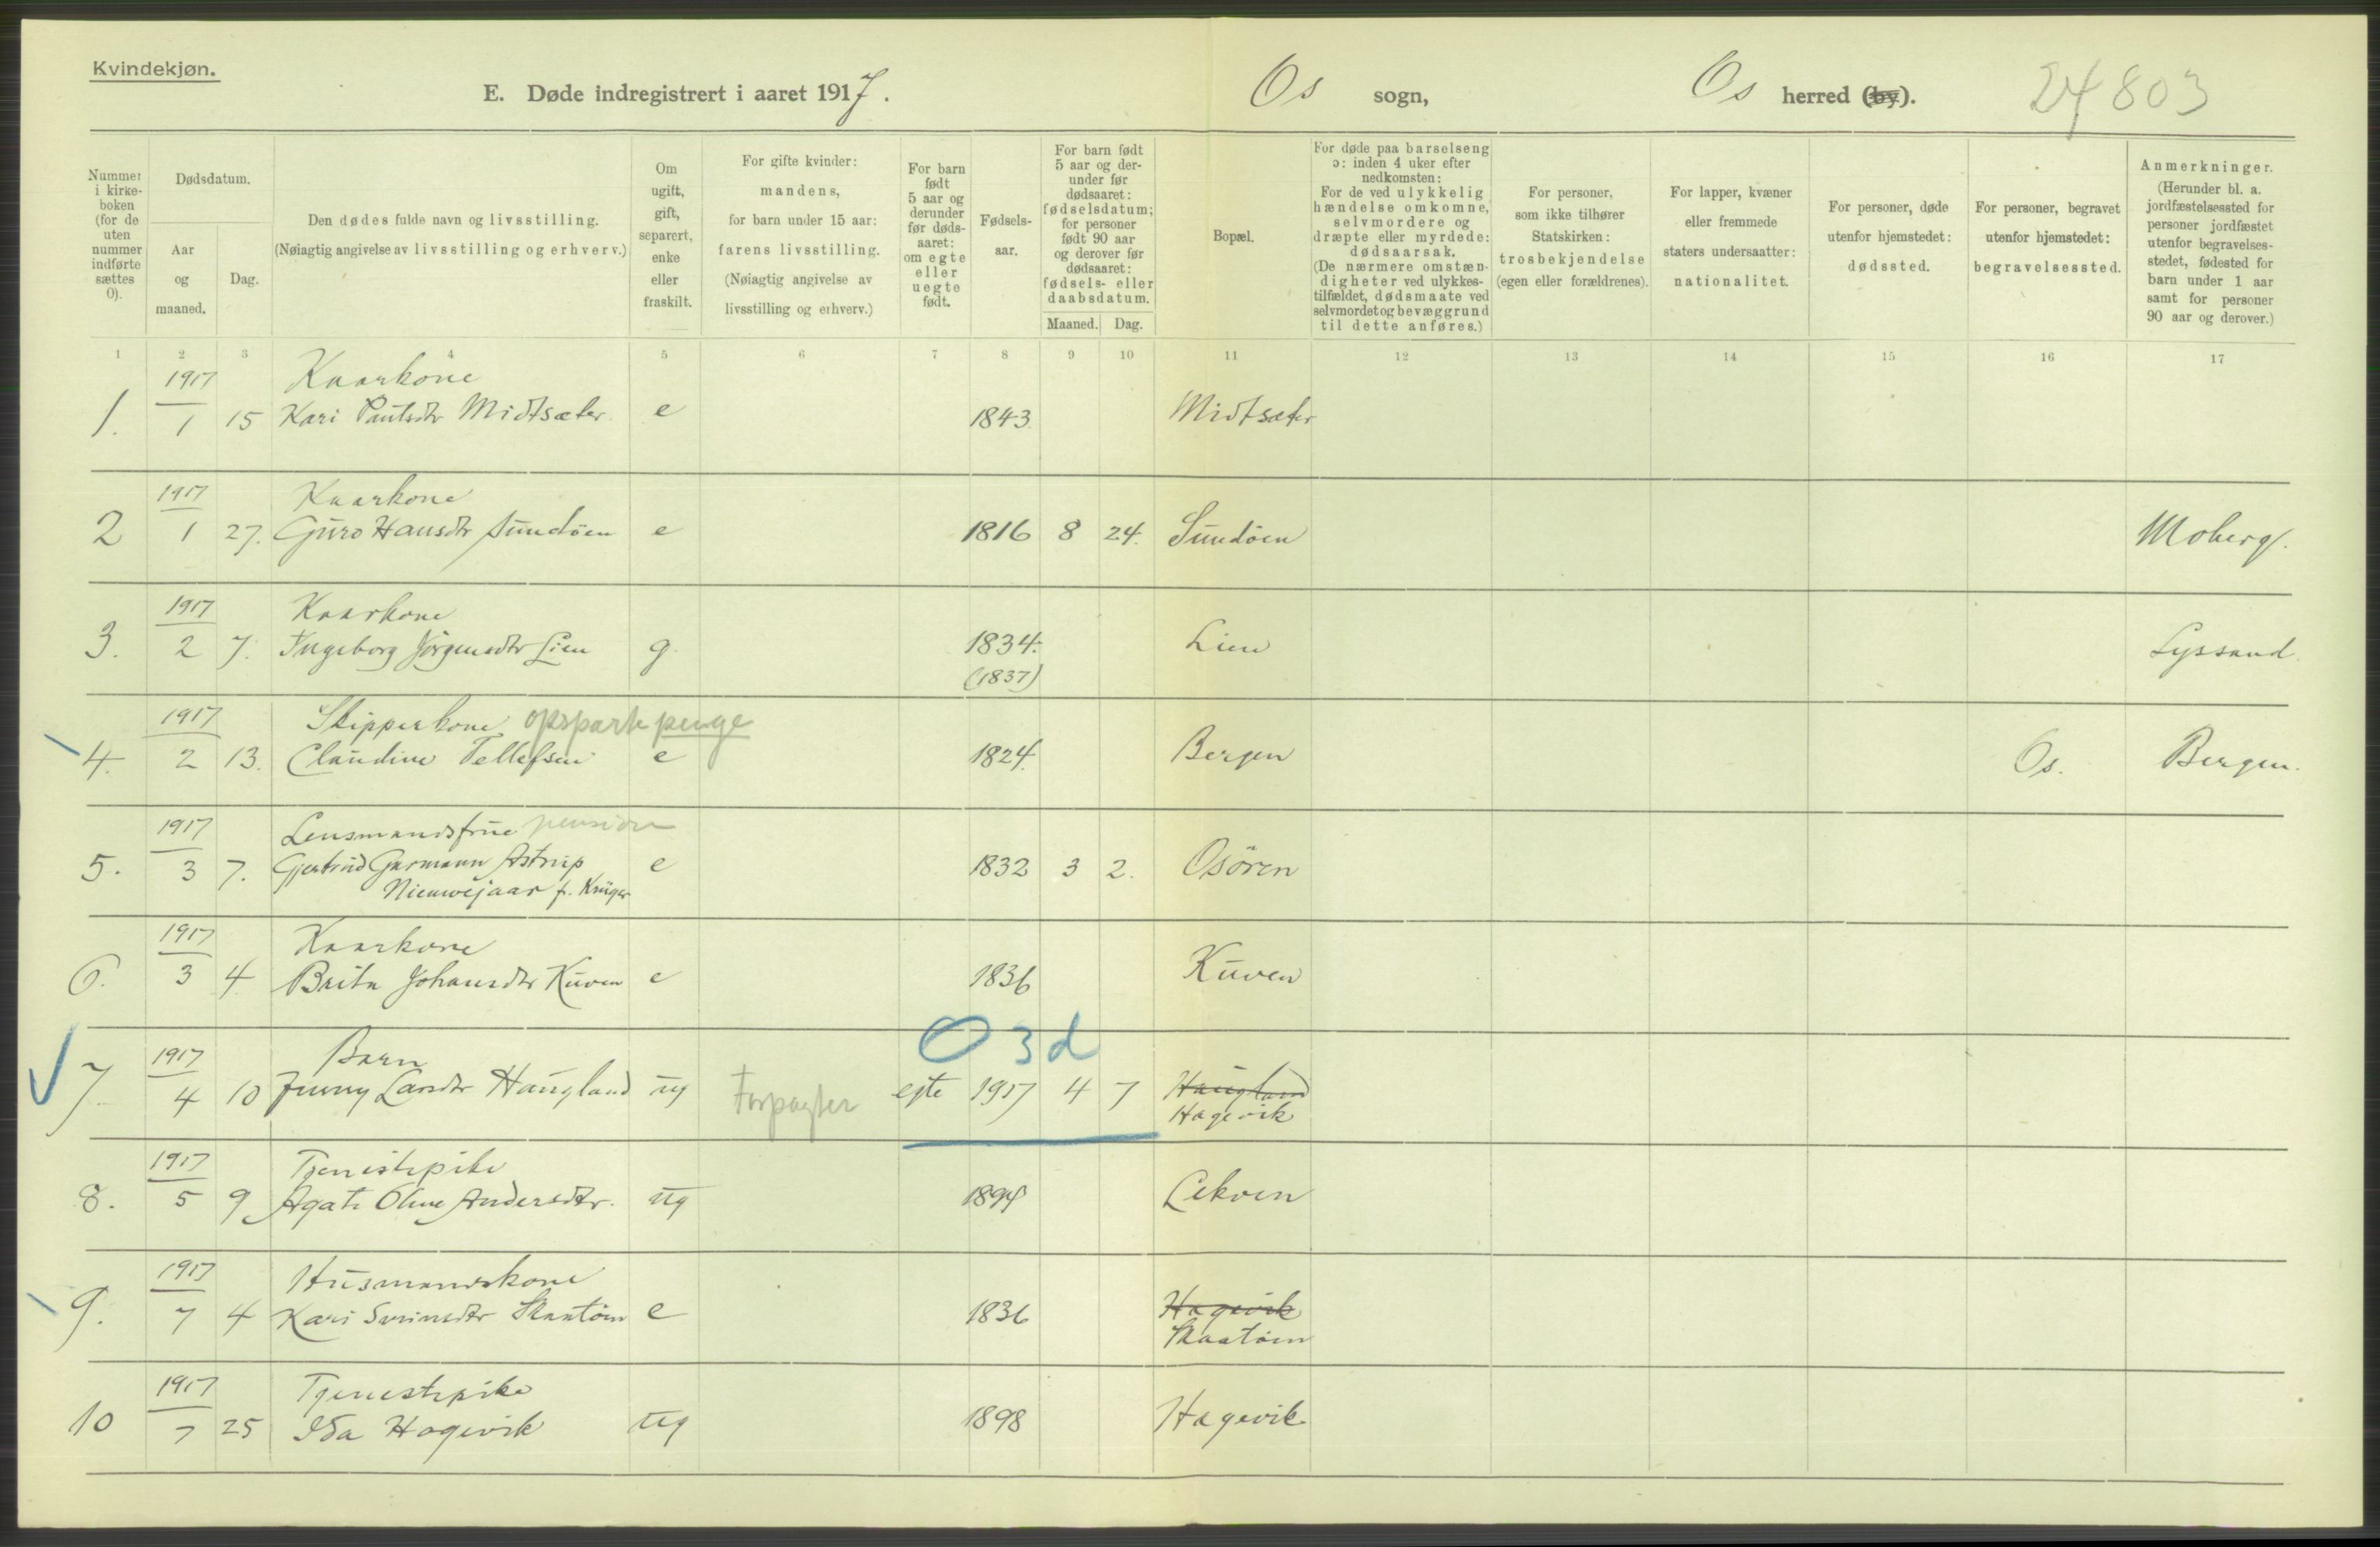 Kvindekjøn.
E. Døde indregistrert i aaret 1917.
Os sogn,
Os herred (by).
24803
Nummer i kirkeboken (for de uten nummer indførte sættes 0).
Dødsdatum.
Aar og maaned.
Dag.
Den dødes fulde navn og livsstilling.
(Nøiagtig angivelse av livsstilling og erhverv.)
Om ugift, gift, separert, enke eller fraskilt.
For gifte kvinder: mandens, for barn under 15 aar: farens livsstilling. (Nøiagtig angivelse av livsstilling og erhverv.)
For barn født 5 aar og derunder før dødsaaret: om egte eller uegte født.
Fødselsaar.
For barn født 5 aar og derunder før dødsaaret: fødselsdatum; for personer født 90 aar og derover før dødsaaret: fødsels- eller daabsdatum.
Maaned. Dag.
Bopæl.
For døde paa barselseng ɔ: inden 4 uker efter nedkomsten: For de ved ulykkelig hændelse omkomne, selvmordere og dræpte eller myrdede: dødsaarsak. (De nærmere omstændigheter ved ulykkestilfældet, dødsmaate ved selvmordet og bevæggrund til dette anføres.)
For personer, som ikke tilhører Statskirken: trosbekjendelse (egen eller forældrenes).
For lapper, kvæner eller fremmede staters undersaatter: nationalitet.
For personer, døde utenfor hjemstedet: dødssted.
For personer, begravet utenfor hjemstedet: begravelsessted.
Anmerkninger. (Herunder bl. a. jordfæstelsessted for personer jordfæstet utenfor begravelsesstedet, fødested for barn under 1 aar samt for personer 90 aar og derover.)
1 2 3 4 5 6 7 8 9 10 11 12 13 14 15 16 17
1917 Kaarkone
1. 1 15 Kari Paulsdtr Midtsæter e 1843 Midtsæter
1917 Kaarkone
2 1 27. Guro Hansdtr Sundöen e 1816 8 24. Sundöen Moberg.
1917 Kaarkone
3. 2 7. Ingeborg Jörgensdtr Lien g 1834. Lien Lyssand
(1837)
1917 Skipperkone opsparte penge
4. 2 13. Claudine Tellefsen e 1824. Bergen Os. Bergen.
1917 Lensmandsfrue pension
5. 3 7. Gjertrud Garmann Astrup e 1832 3 2. Osören
Nieuwejaar f. Krüger
1917 Kaarkone
6. 3 4 Brita Johansdtr Kuven e 1836 Kuven
0 3 d
1917 Barn
7. 4 10 Jenny Larsdtr Haugland ug Forpagter egte 1917 4 7 Haugland
Hagevik
1917 Tjenestepike
8. 5 9 Agate Oline Andersdtr. ug 1894 Lekven
1917 Husmandskone
9. 7 4 Kari Sveinsdtr Skaatöen e 1836 Hagevik
Skaatöen
1917 Tjenestepike
10 7 25 Ida Hagevik ug 1898 Hagevik